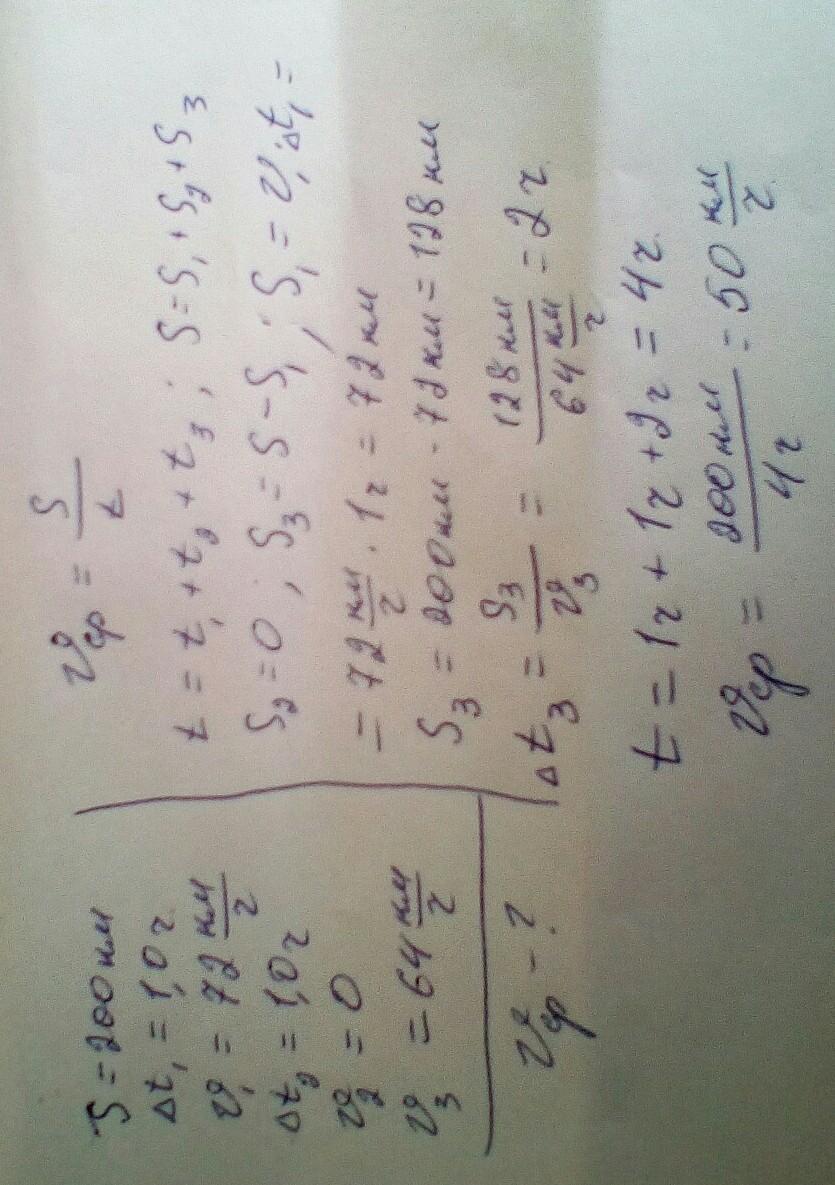 S = 200 км
Δt₁ = 1,0 ч
υ₁ = 72 км/ч
Δt₂ = 1,0 ч
υ₂ = 0
υ₃ = 64 км/ч
υср - ?
υср = S/t
t = t₁ + t₂ + t₃ ; S = S₁ + S₂ + S₃
S₂ = 0 ; S₃ = S - S₁ ; S₁ = υ₁ · Δt₁ =
= 72 км/ч · 1ч = 72 км
S₃ = 200 км - 72 км = 128 км
Δt₃ = S₃/υ₃ = 128 км / 64 км/ч = 2 ч
t = 1ч + 1ч + 2ч = 4ч.
υср = 200 км / 4ч = 50 км/ч